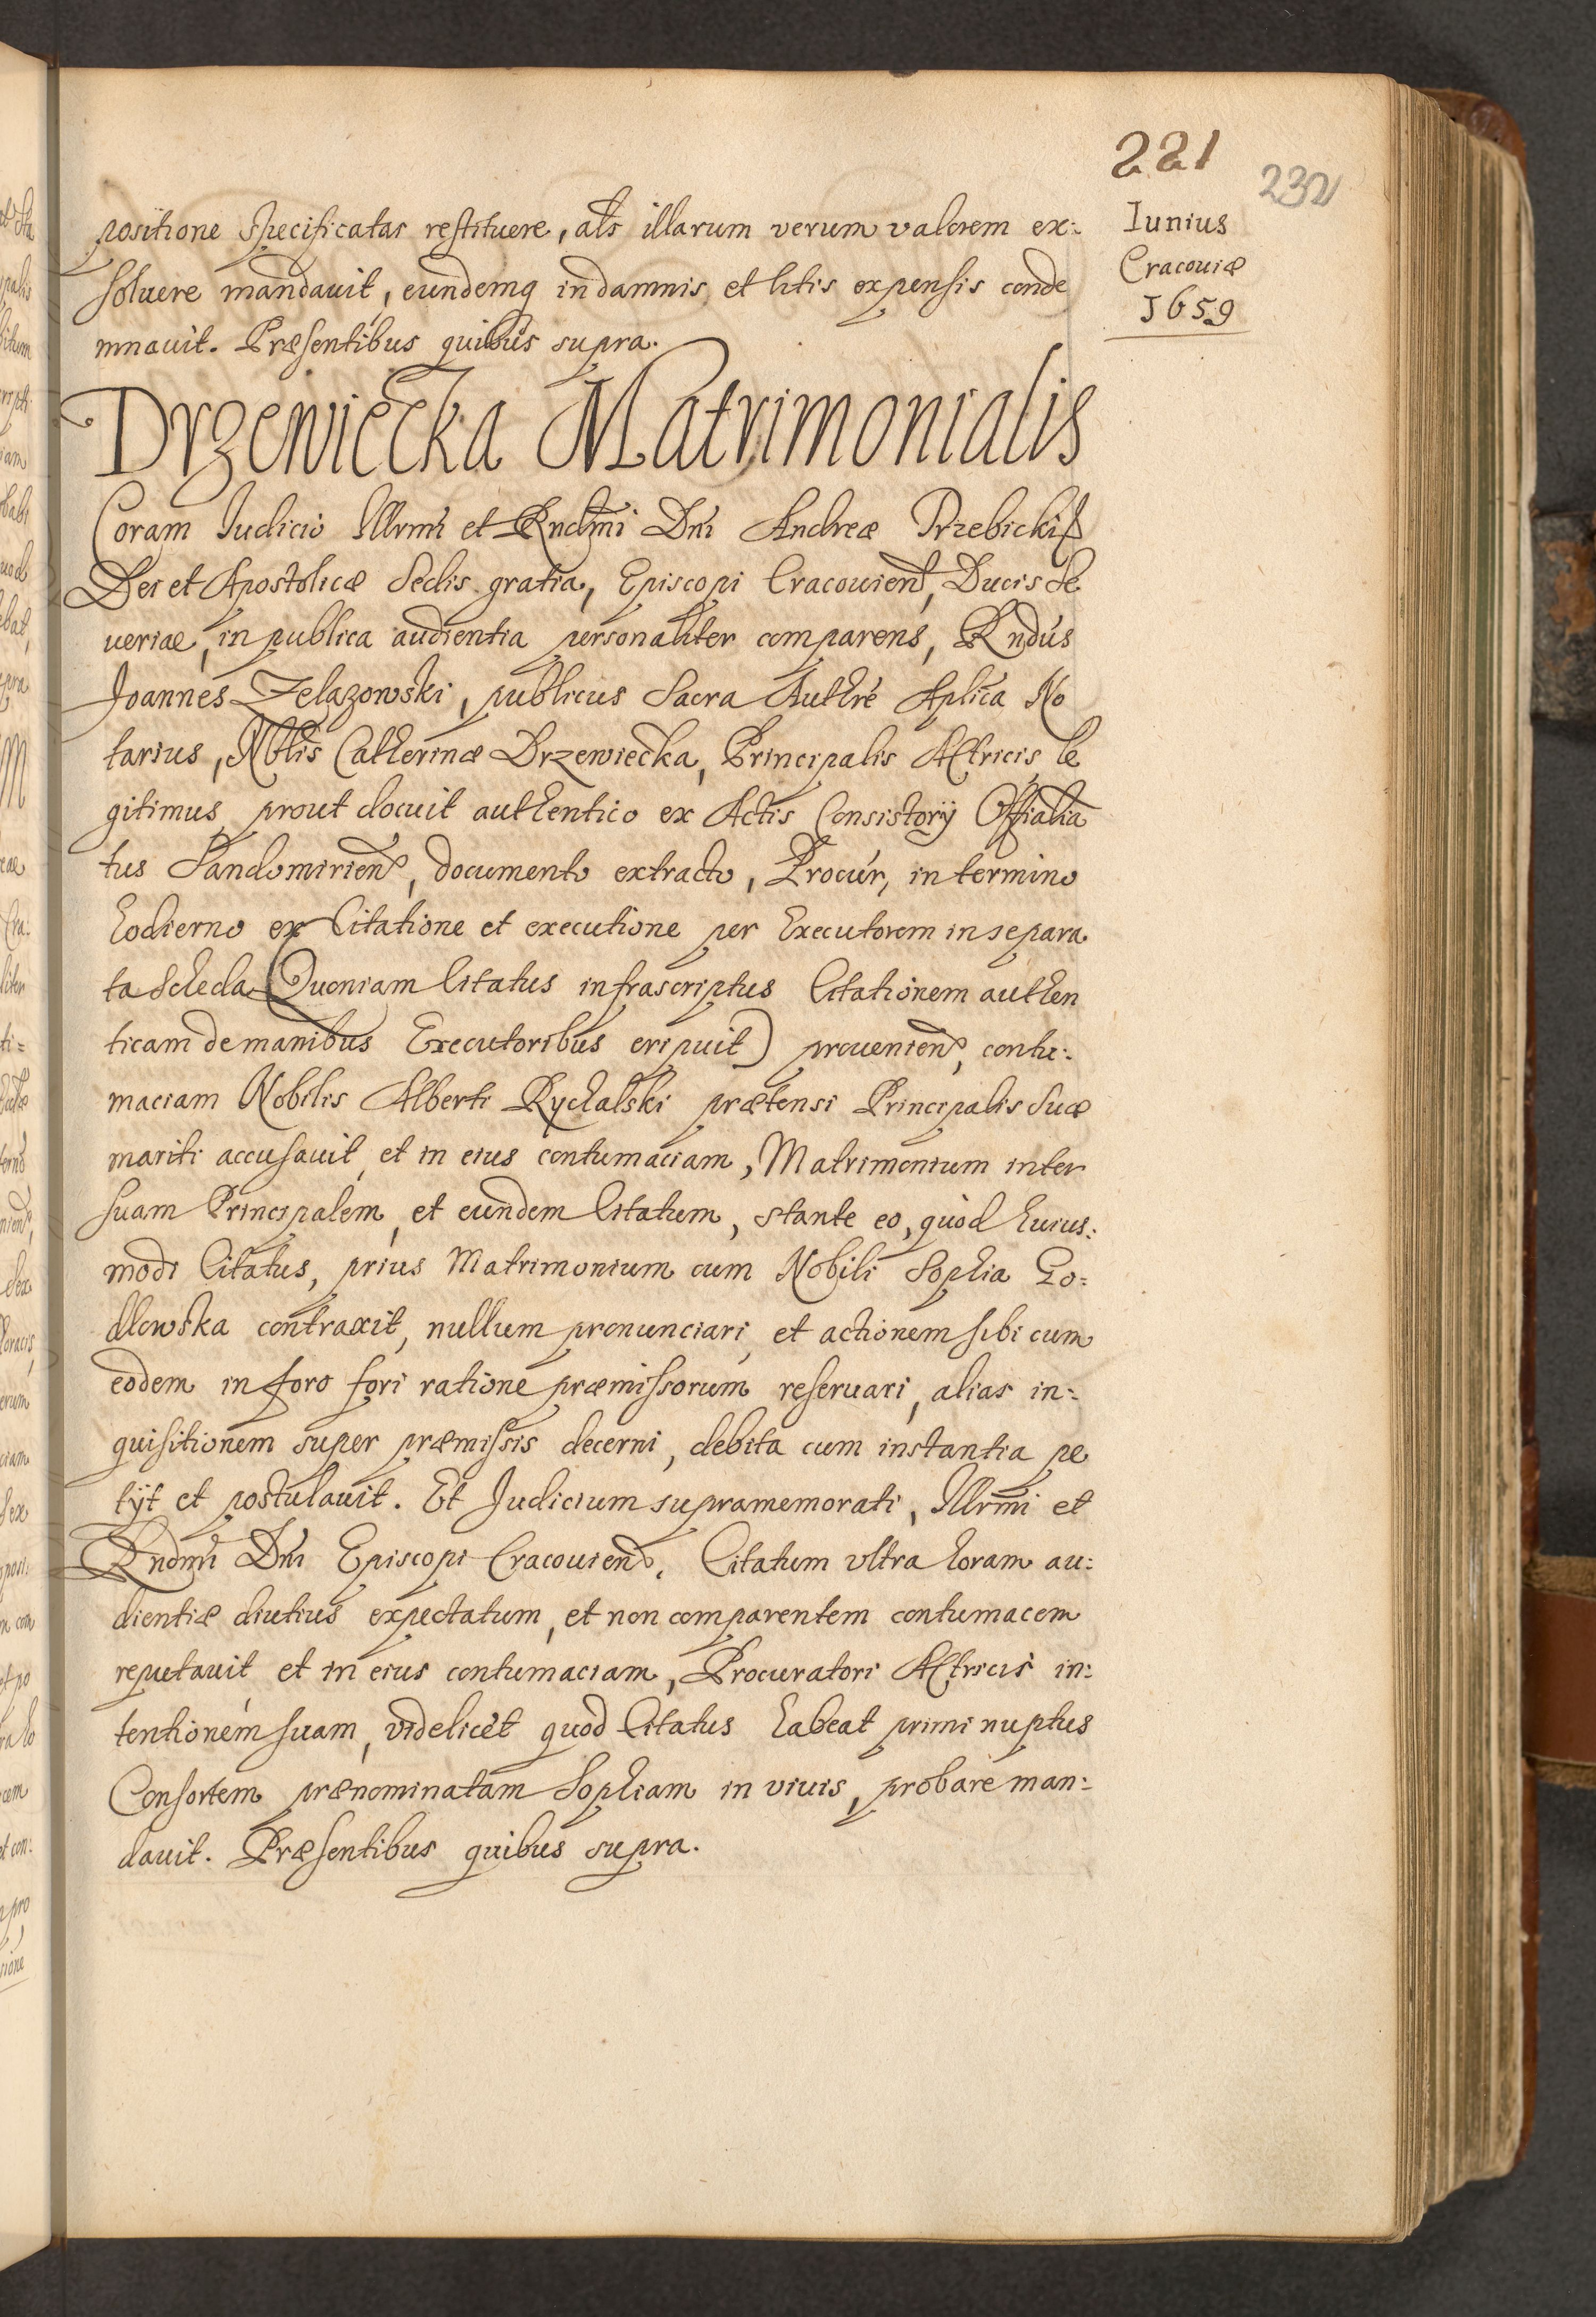 221
232
Iunius
Cracouiæ
1659
positione specificatas restituere, als illarum verum valorem ex:
soluere mandauit, eundemq in damnis et litis expensis conde
mnauit. Præsentibus quibus supra.
Drzewiecka Matrimonialis
Coram Iudicio Illrmi et Rndmi Dni Andreæ Trzebicki
Dei et Apostolicæ Sedis gratia, Episcopi Cracouien, Ducis Se
ueriae, in publica audientia personaliter comparens, Rndus
Joannes Zelazowski, publicus Sacra Authre Aplica No
tarius, Nblis Catherinæ Drzewiecka, Principalis Actricis le
gitimus prout docuit authentico ex Actis Consistorÿ Offialia
tus Sandomirien, documento extracto, Procur, in termino
hodierno ex Citatione et executione per Executorem in separa
ta Scheda (Quoniam Citatus infrascriptus Citationem authen
ticam de manibus Executoribus eripuit) prouenien, contu:
maciam Nobilis Alberti Rychalski prætensi Principalis suæ
mariti accusauit, et in eius contumaciam, Matrimonium inter
suam Principalem, et eundem Citatum, stante eo, quod huius:
modi Citatus, prius Matrimonium cum Nobili Sophia Go:
dlowska contraxit, nullum pronunciari, et actionem sibi cum
eodem in foro fori ratione præmissorum reseruari, alias in:
quisitionem super præmissis decerni, debita cum instantia pe
tÿt et postulauit. Et Judicium supramemorati, Illrmi et
Rndmi Dni Episcopi Cracouien, Citatum vltra horam au:
dientiæ diutius expectatum, et non comparentem contumacem
reputauit et in eius contumaciam, Procuratori Actricis in:
tentionem suam, videlicet quod Citatus habeat primi nuptus
Consortem prænominatam Sophiam in viuis, probare man:
dauit. Præsentibus quibus supra.